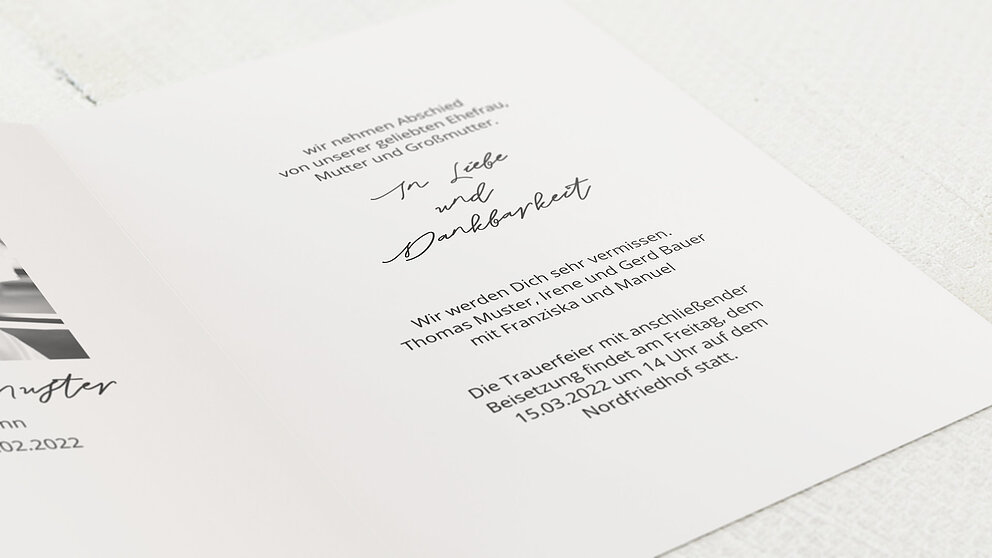 Muster
nn
.02.2022
wir nehmen Abschied
von unserer geliebten Ehefrau,
Mutter und Großmutter.
In Liebe
und
Dankbarkeit
Wir werden Dich sehr vermissen.
Thomas Muster, Irene und Gerd Bauer
mit Franziska und Manuel
Die Trauerfeier mit anschließender
Beisetzung findet am Freitag, dem
15.03.2022 um 14 Uhr auf dem
Nordfriedhof statt.